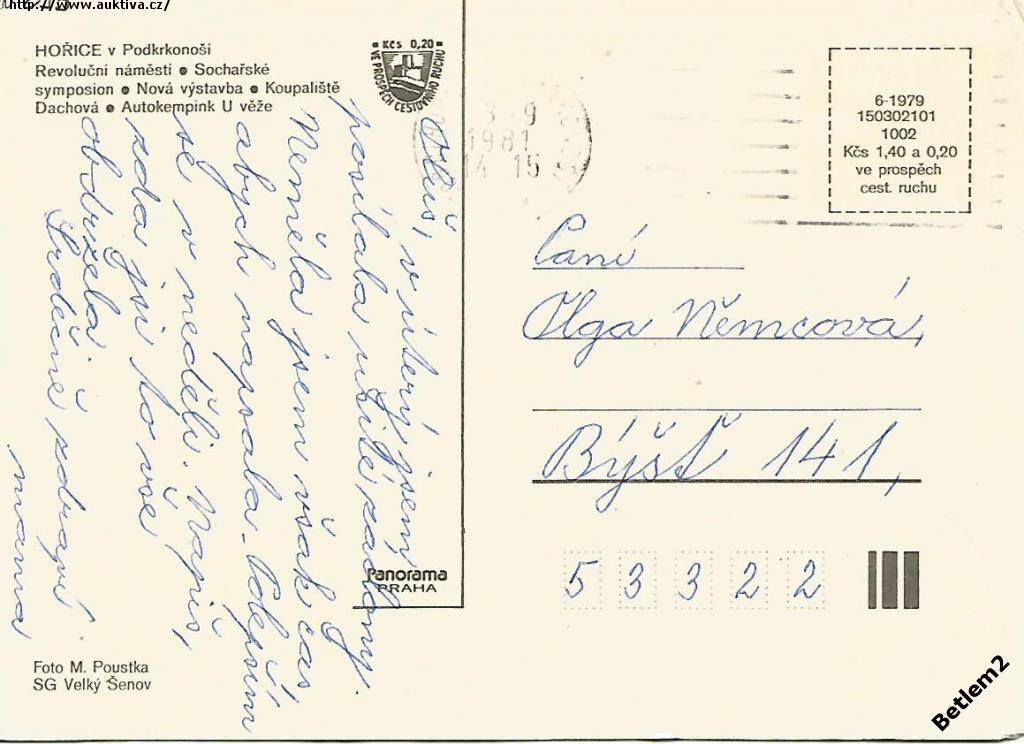 http://www.auktiva.cz/
HOŘICE v Podkrkonoší
Revoluční náměstí ● Sochařské
symposion ● Nová výstavba ● Koupaliště
Dachová ● Autokempink U věže
Kčs 0,20
VE PROSPĚCH CESTOVNÍHO RUCHU
3-9
1981
14 15
6-1979
150302101
1002
Kčs 1,40 a 0,20
ve prospěch
cest. ruchu
v úterý jsem
posílala
Neměla jsem však čas
abych napsala.
se v neděli. Napiš,
zda jsi to vše
obdržela
Srdečně zdraví
mama
Paní
Olga Němcová,
Býšť 141,
53322
Panorama
PRAHA
Foto M. Poustka
SG Velký Šenov
Betlem2